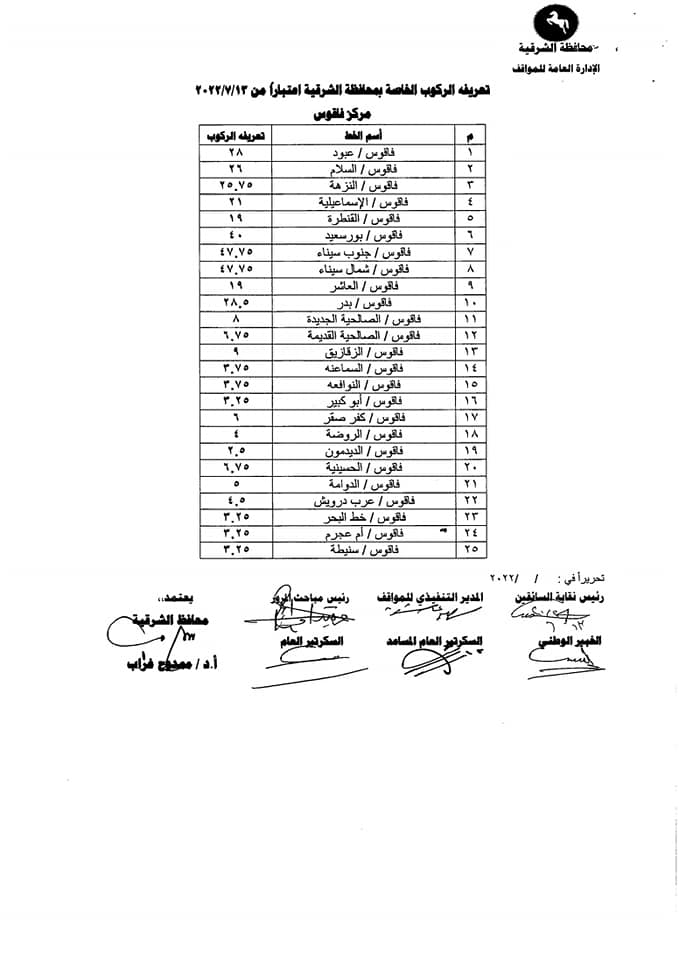 محافظة الشرقية
الإدارة العامة للمواقف
تعريفه الركوب الخاصة بمحافظة الشرقية إعتباراً من ٢٠٢٢/٧/١٣
مركز فاقوس
م أسم الخط تعريفه الركوب
١ فاقوس / عبود ٢٨
٢ فاقوس / السلام ٢٦
٣ فاقوس / النزهة ٢٥.٧٥
٤ فاقوس / الإسماعيلية ٢١
٥ فاقوس / القنطرة ١٩
٦ فاقوس / بورسعيد ٤٠
٧ فاقوس / جنوب سيناء ٤٧.٧٥
٨ فاقوس / شمال سيناء ٤٧.٧٥
٩ فاقوس / العاشر ١٩
١٠ فاقوس / بدر ٢٨.٥
١١ فاقوس / الصالحية الجديدة ٨
١٢ فاقوس / الصالحية القديمة ٦.٧٥
١٣ فاقوس / الزقازيق ٩
١٤ فاقوس / السماعنه ٣.٧٥
١٥ فاقوس / النوافعه ٣.٧٥
١٦ فاقوس / أبو كبير ٣.٢٥
١٧ فاقوس / كفر صقر ٦
١٨ فاقوس / الروضة ٤
١٩ فاقوس / الديدمون ٢.٥
٢٠ فاقوس / الحسينية ٦.٧٥
٢١ فاقوس / الدوامة ٥
٢٢ فاقوس / عرب درويش ٤.٥
٢٣ فاقوس / خط البحر ٣.٢٥
٢٤ فاقوس / أم عجرم ٣.٢٥
٢٥ فاقوس / سنيطة ٣.٢٥
تحريراً في : / / ٢٠٢٢
رئيس نقابة السائقين المدير التنفيذي للمواقف رئيس مباحث المرور يعتمد،،
محافظ الشرقية
الخبير الوطني السكرتير العام المساعد السكرتير العام
أ.د / ممدوح غراب